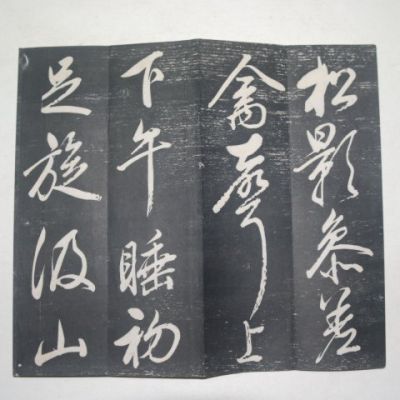 松影參差
禽聲上
下午睡初
足旋汲山